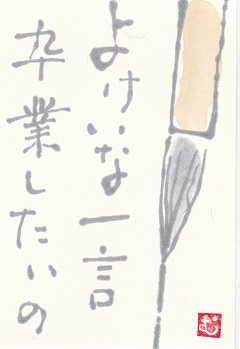 よけいな一言
卒業したいの